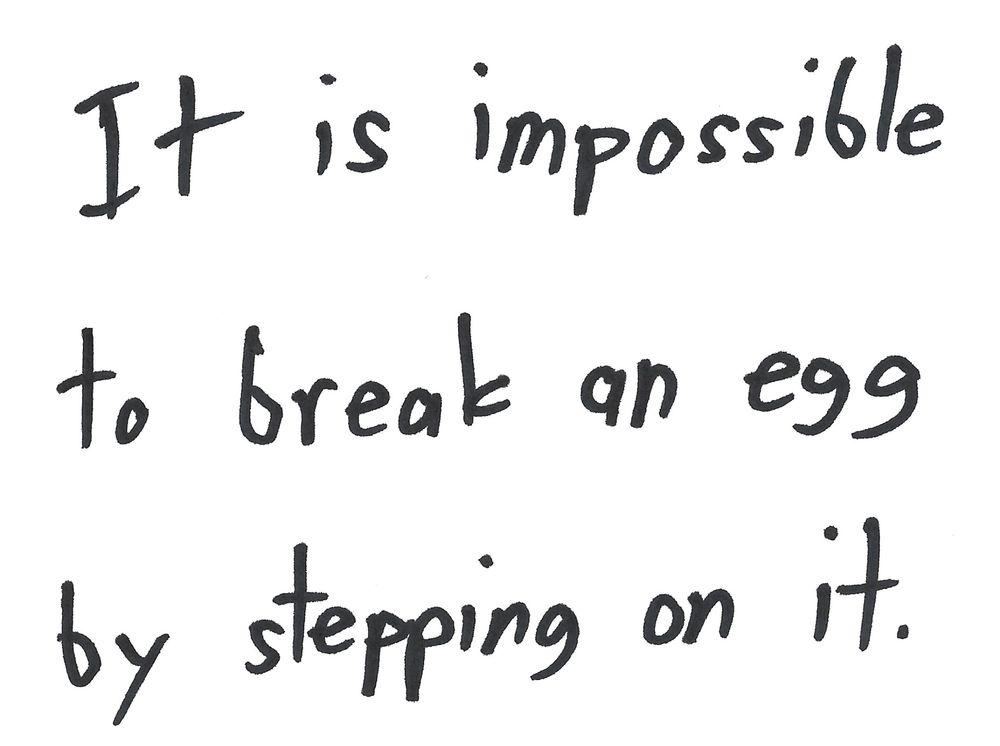 It is impossible
to break an egg
by stepping on it.